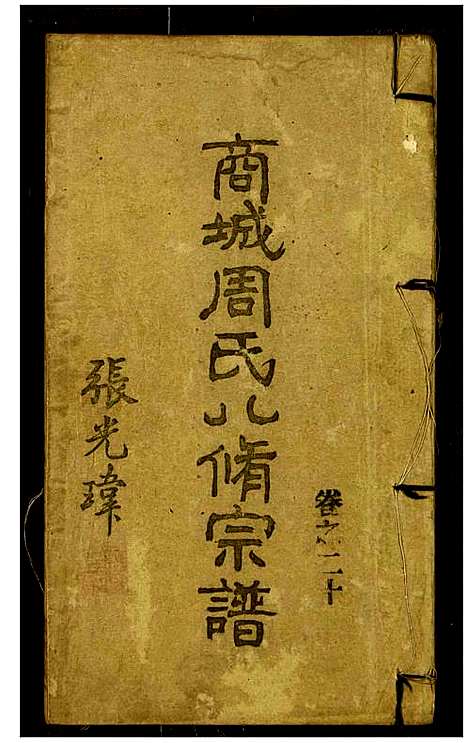 卷之二十
商城周氏八脩宗譜
張光瑋